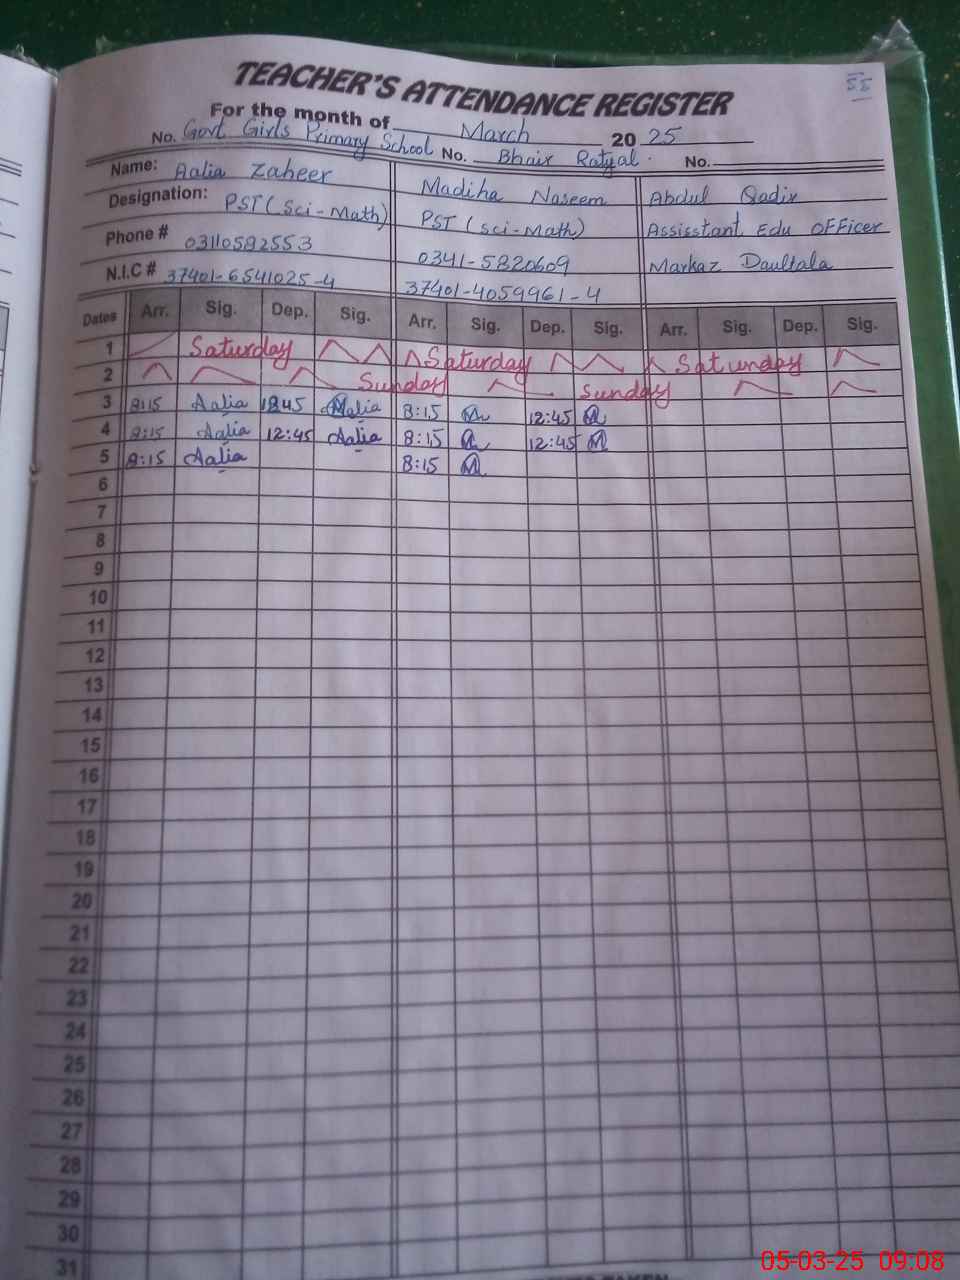 55
TEACHER'S ATTENDANCE REGISTER
For the month of March 2025
No. Govt Girls Primary School No. Bhair Ratyal. No.
Name: Aalia Zaheer Madiha Naseem Abdul Qadir
Designation: PST (Sci-Math) PST (sci-Math) Assisstant Edu OFFicer
Phone # 03110592553 0341-5820609 Markaz Daultala
N.I.C # 37401-6541025-4 37401-4059961-4
Dates Arr. Sig. Dep. Sig. Arr. Sig. Dep. Sig. Arr. Sig. Dep. Sig.
1 Saturday Saturday Saturday
2 Sunday Sunday
3 8:15 Aalia 1245 Aalia 8:15 12:45
4 8:15 Aalia 12:45 Aalia 8:15 12:45
5 8:15 Aalia 8:15
6
7
8
9
10
11
12
13
14
15
16
17
18
19
20
21
22
23
24
25
26
27
28
29
30
31
05-03-25 09:08